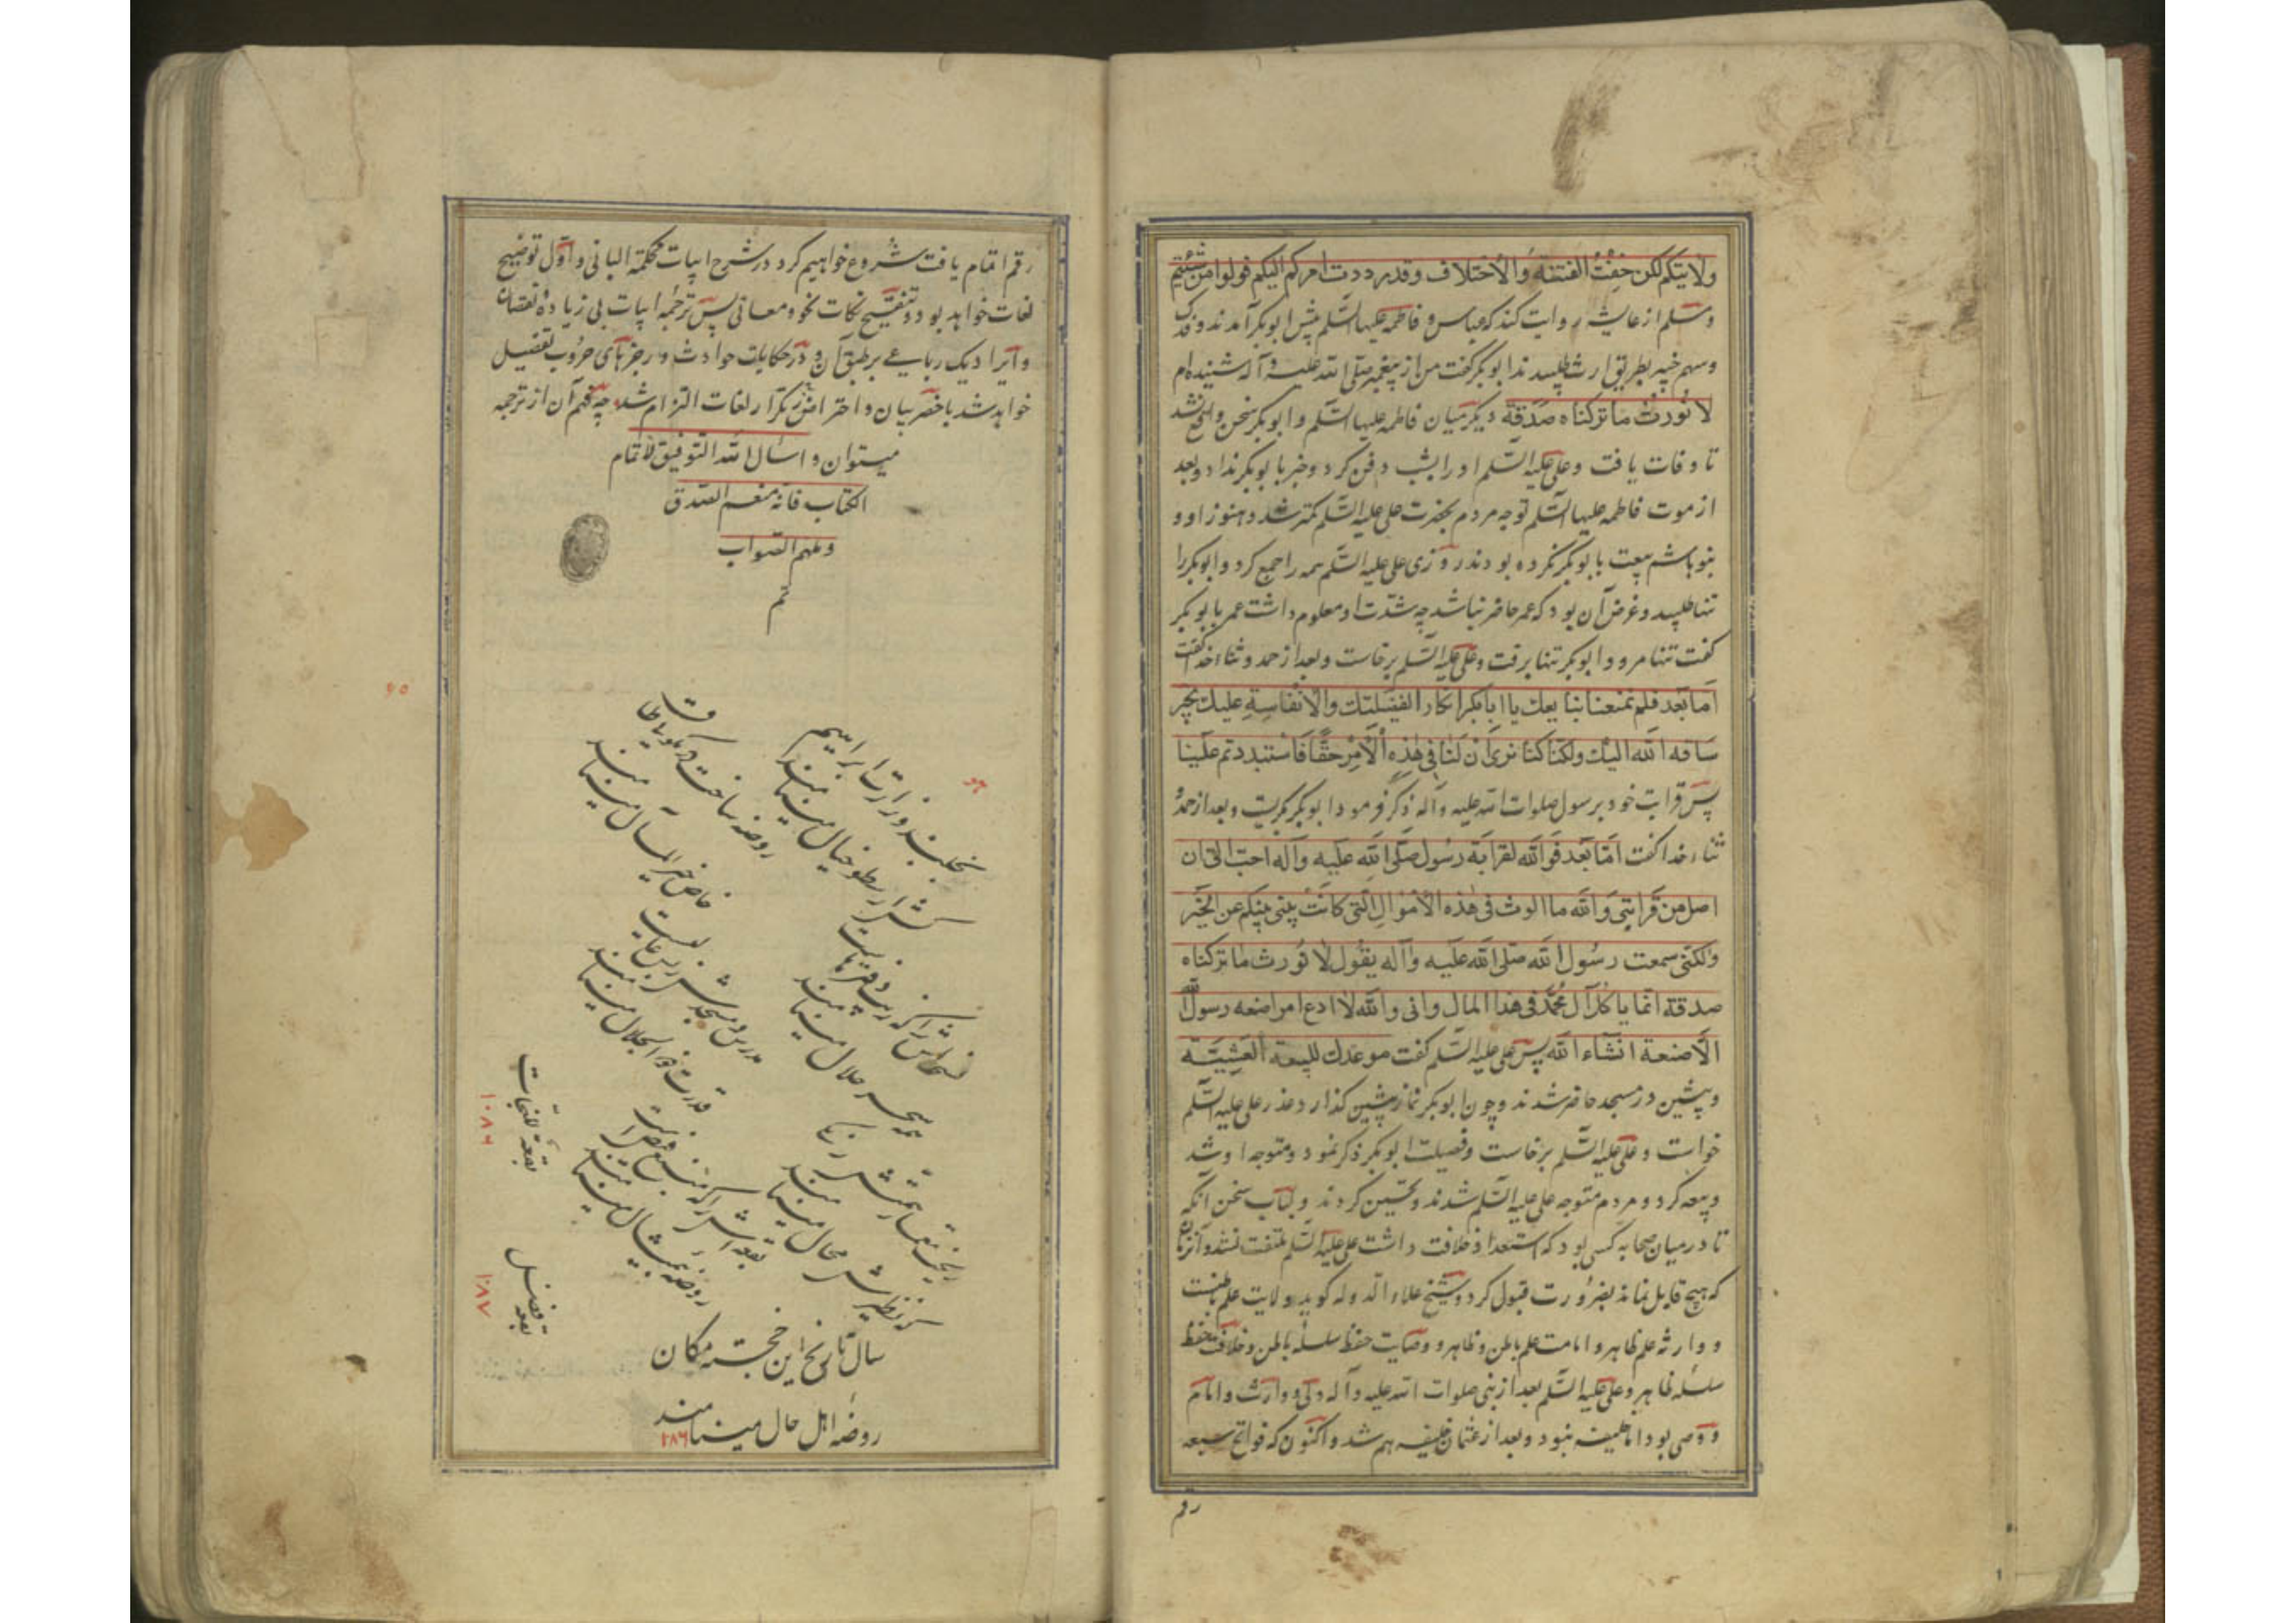 ولایتکم لکن خفت الفتنة والاختلاف وقد رددت امرکم الیکم فولوا من شئتم
و مسلم از عایشه روایت کند که عباس و فاطمه علیها السّلم پیش ابوبکر آمدند و فدک
و سهم خیبر بطریق ارث طلبیدند ابوبکر گفت من از پیغمبر صلّی الله علیه و آله شنیده‌ام
لا نُورَثُ ما ترکناه صدقة دیگر میان فاطمه علیها السّلم و ابوبکر سخن واقع نشد
تا وفات یافت و علی علیه السّلم او را بشب دفن کرد و خبر با بوبکر نداد و بعد
از موت فاطمه علیها السّلم توجه مردم بحضرت علی علیه السّلم کمتر شد و هنوز او و
بنو هاشم بیعت با بوبکر نکرده بودند روزی علی علیه السّلم همه را جمع کرد و ابوبکر را
تنها طلبید و غرض آن بود که عمر حاضر نباشد چه شدّت او معلوم داشت عمر با بوبکر
گفت تنها مرو و ابوبکر تنها برفت و علی علیه السّلم برخاست و بعد از حمد و ثناء خدا گفت
امّا بعد فلم تمنعنا نبایعک یا ابابکر انکار الفضیلتک والانفاسة علیک بخیر
ساقه الله الیک ولکنا کنا نری ان لنا فی هذه الامر حقّا فاستبددتم علینا
پس قرابت خود برسول صلوات الله علیه و آله ذکر فرمود ابوبکر بگریست و بعد از حمد و
ثناء خدا گفت امّا بعد فوالله لقرابة رسول صلّی الله علیه وآله احبّ الیّ ان
اصل من قرابتی والله ما الوت فی هذه الاموال الّتی کانت بینی بینکم عن الخیر
ولکنّی سمعت رسول الله صلّی الله علیه وآله یقول لا نورث ما ترکناه
صدقة انّما یاکل آل محمّد فی هذا المال وانی والله لا ادع امرا صنعه رسول الله
الّا صنعة انشاء الله پس علی علیه السّلم گفت موعدک للبیعة العشیّة
و پیشین در مسجد حاضر شدند و چون ابوبکر نماز پیشین گذارد عذر علی علیه السّلم
خواست و علی علیه السّلم برخاست و فضیلت ابوبکر ذکر نمود و متوجه او شد
و بیعه کرد و مردم متوجه علی علیه السّلم شدند و تحسین کردند و لباب سخن آنکه
تا در میان صحابه کسی بود که استعداد خلافت داشت علی علیه السّلم ملتفت نشد و آنزمان
که هیچ قابل نماند بضرورت قبول کرد و شیخ علاء الدوله گوید ولایت علم باطنست
و وارثه علم ظاهر و امامت علم باطن و ظاهر و وصایت حفظ سلسله باطن و خلافت حفظ
سلسله ظاهر و علی علیه السّلم بعد از نبی صلوات الله علیه وآله ولی و وارث و امام
و وصی بود اما خلیفه نبود و بعد از عثمان خلیفه هم شد و اکنون که فواتح سبعه
رقم
رقم اتمام یافت شروع خواهیم کرد در شرح ابیات محکمة البانی و اوّل توضیح
لغات خواهد بود و تنقیح نکات نحو و معانی پس ترجمه ابیات بی زیاده و نقصان
و ایراد یک رباعی بر طبق آن و در حکایات حوادث و رجزهای حروب تفصیل
خواهد شد باخصر بیان و احتراز از تکرار لغات التزام شد چه فهم آن از ترجمه
میتوان و اسال الله التوفیق لاتمام
الکتاب فانه منعم الصدق
و ملهم الصواب
تم
وزارت ابراهیم
ارسطو خیال مینامند
روضه ساخت
خاص خیر المآل مینامند
سحر حلال مینامند
قدرت ذو الجلال مینامند
محال مینامند
روضه بیمثال مینامند
بقعه للنجات
۱۰۸۶
بقعه فضل
۱۰۸۷
سال تاریخ این خجسته مکان
روضهٔ اهل حال مینامند
۱۰۸۶